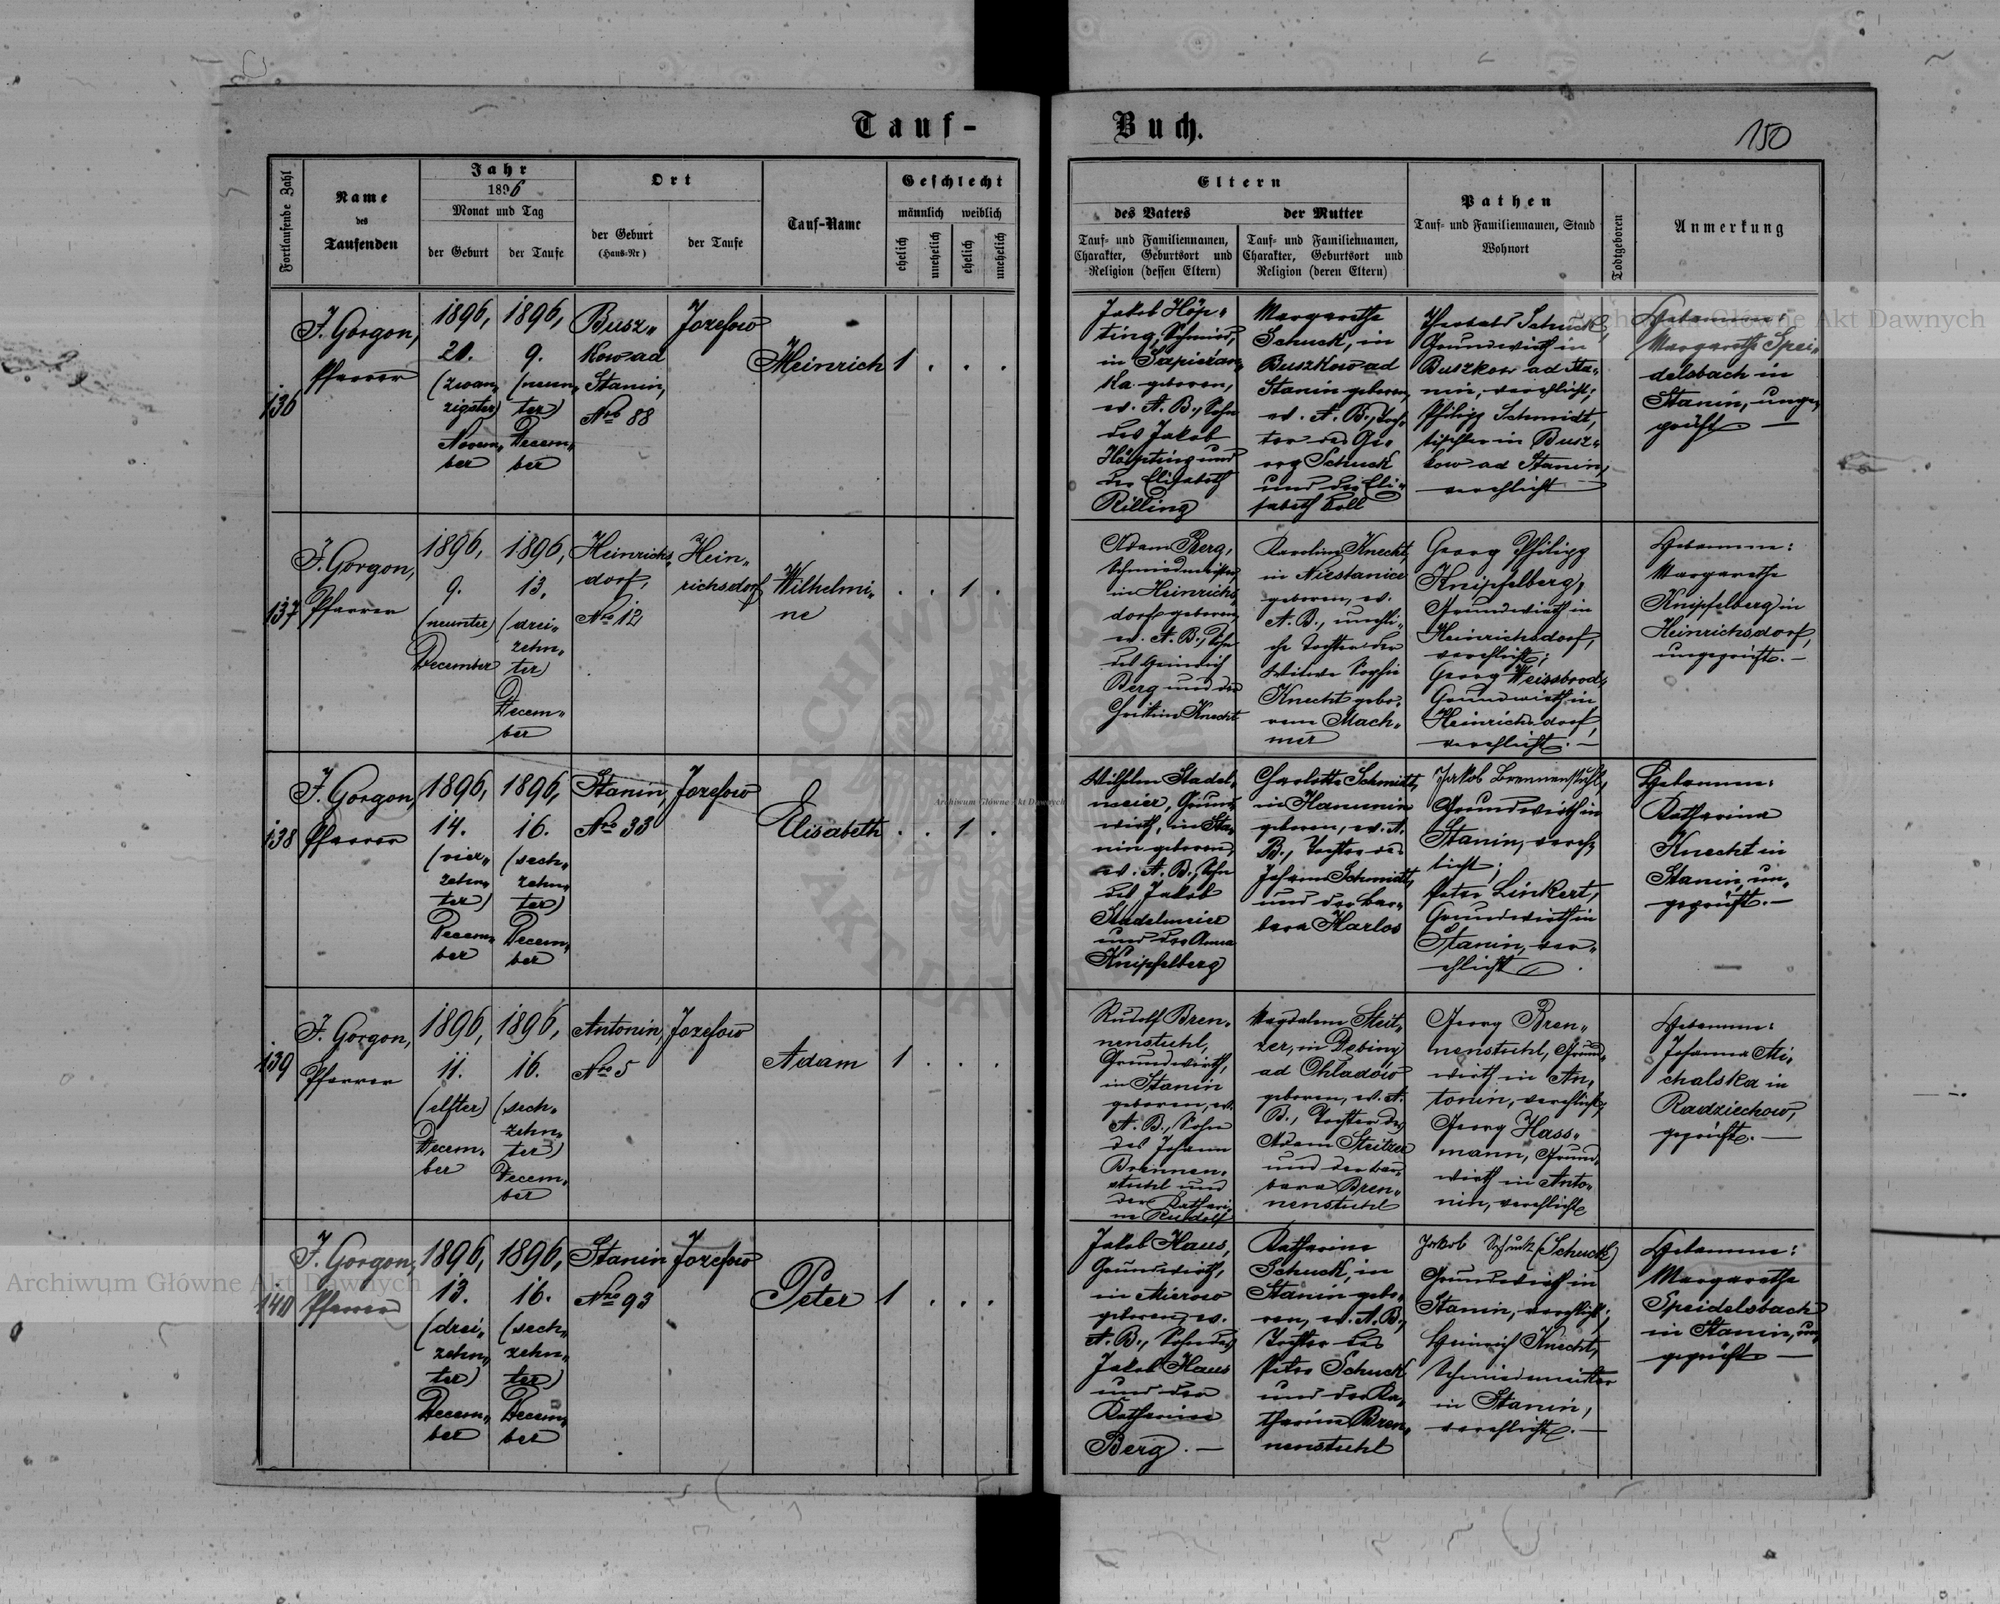 Tauf-
Buch.
150
Fortlaufende Zahl
Name
des
Taufenden
Jahr
1896
Monat und Tag
der Geburt
der Taufe
Ort
der Geburt
(Haus-Nr)
der Taufe
Tauf-Name
Geschlecht
männlich
weiblich
ehelich
unehelich
ehelich
unehelich
Eltern
des Vaters
Tauf- und Familiennamen,
Charakter, Geburtsort und
Religion (dessen Eltern)
der Mutter
Tauf- und Familiennamen,
Charakter, Geburtsort und
Religion (deren Eltern)
Pathen
Tauf- und Familiennamen, Stand
Wohnort
Todtgeboren
Anmerkung
136
J. Gorgon,
Pfarrer
1896,
20.
(zwan„
zigster)
Novem„
ber
1896,
9.
(neun„
ter)
Decem„
ber
Busz„
kow ad
Stanin,
Nro 88
Jozefow
Heinrich
1 . . .
Jakob Höp„
ting, Schmied,
geboren,
ev. A. B., Sohn
des Jakob
Höpting und
der Elisabeth
Rilling
Margarethe
Schuck, in
Buszkow ad
Stanin geboren,
ev. A. B., Toch„
ter des Ge„
org Schuck
und der Eli„
sabeth Koll
Schuck,
Grundwirth in
Buszkow ad Sta„
nin, verehlicht;
Philipp Schmidt,
Tischler in Busz„
kow ad Stanin,
verehlicht
Hebamme:
Margarethe Spei„
delsbach in
Stanin, unge„
prüft —
137
J. Gorgon,
Pfarrer
1896,
9.
(neunter)
December
1896,
13.
(drei„
zehn„
ter)
Decem„
ber
Heinrichs„
dorf,
Nro 12
Hein„
richsdorf
Wilhelmi„
ne
. . 1 .
Adam Berg,
Schmiedmeister,
in Heinrichs„
dorf geboren,
ev. A. B., Sohn
des Heinrich
Berg und der
Christine Knecht
Karoline Knecht,
in Niestanice
geboren, ev.
A. B., unehli„
che Tochter der
Witwe Sophie
Knecht gebo„
rene Mach„
mer
Georg Philipp
Knipfelberg,
Grundwirth in
Heinrichsdorf,
verehlicht;
Georg Weissbrod,
Grundwirth in
Heinrichsdorf,
verehlicht. —
Hebamme:
Margarethe
Knipfelberg in
Heinrichsdorf,
ungeprüft. —
138
J. Gorgon,
Pfarrer
1896,
14.
(vier„
zehn„
ter)
Decem„
ber
1896,
16.
(sech„
zehn„
ter)
Decem„
ber
Stanin,
Nro 33
Jozefow
Elisabeth
. . 1 .
Wilhelm Stadel„
meier, Grund„
wirth, in Sta„
nin geboren,
ev. A. B., Sohn
des Jakob
Stadelmeier
und der Anna
Knipfelberg
Charlotte Schmidt,
in Hanunin
geboren, ev. A.
B., Tochter des
Johann Schmidt,
und der Bar„
bara Karlos
Jakob Brennenstuhl,
Grundwirth in
Stanin, vereh„
licht;
Peter Linkert,
Grundwirth in
Stanin, ver„
ehlicht .
Hebamme:
Katharina
Knecht in
Stanin, un„
geprüft. —
139
J. Gorgon,
Pfarrer
1896,
11.
(elfter)
Decem„
ber
1896,
16.
(sech„
zehn„
ter)
Decem„
ber
Antonin,
Nro 5
Jozefow
Adam
1 . . .
Rudolf Bren„
nenstuhl,
Grundwirth,
in Stanin
geboren, ev.
A. B., Sohn
des Johann
Brennen„
stuhl und
der Kathari„
ne Rudolf
Magdalene Steit„
zer, in Debiny
ad Ohladow
geboren, ev. A.
B., Tochter des
Adam Steitzer
und der Bar„
bara Bren„
nenstuhl
Georg Bren„
nenstuhl, Grund„
wirth in An„
tonin, verehlicht;
Georg Hass„
mann, Grund„
wirth in Anto„
nin, verehlicht
Hebamme:
Johanna Mi„
chalska in
Radziechow,
geprüft. —
140
J. Gorgon,
Pfarrer
1896,
13.
(drei„
zehn„
ter)
Decem„
ber
1896,
16.
(sech„
zehn„
ter)
Decem„
ber
Stanin
Nro 93
Jozefow
Peter
1 . . .
Jakob Haus,
Grundwirth,
in Mierow
geboren, ev.
A. B., Sohn des
Jakob Haus
und der
Katharine
Berg. —
Katharine
Schuck, in
Stanin gebo„
ren, ev. A. B.,
Tochter des
Peter Schuck
und der Ka„
tharine Bren„
nenstuhl
Jakob Schuck (Schuck)
Grundwirth in
Stanin, verehlicht;
Heinrich Knecht,
Schmiedmeister
in Stanin,
verehlicht. —
Hebamme:
Margarethe
Speidelsbach
in Stanin, un„
geprüft —
Archiwum Główne Akt Dawnych
Archiwum Główne Akt Dawnych
Archiwum Główne Akt Dawnych
ARCHIWUM GŁÓWNE AKT DAWNYCH